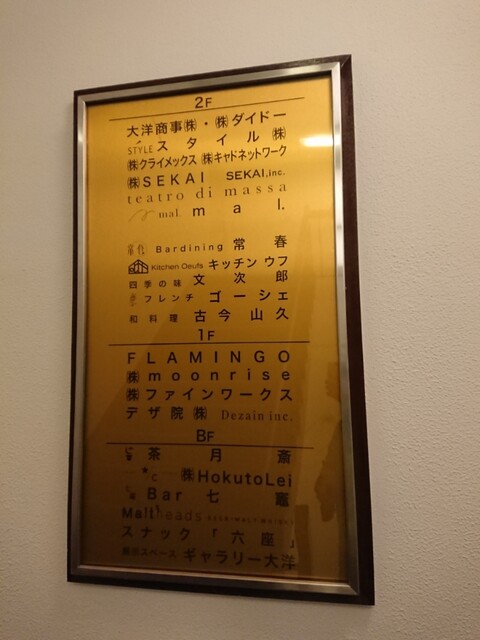 2F
大洋商事㈱・㈱ダイドー
STYLE スタイル㈱
㈱クライメックス ㈱キャドネットワーク
㈱SEKAI SEKAI,inc.
teatro di massa
mal. mal.
Bardining 常春
Kitchen Oeufs キッチン ウフ
四季の味 文次郎
フレンチ ゴーシェ
和料理 古今 山久
1F
FLAMINGO
㈱moonrise
㈱ファインワークス
デザ院㈱ Dezain inc.
BF
茶月斎
㈱HokutoLei
Bar 七竈
Maltheads
スナック「六座」
スペース ギャラリー大洋